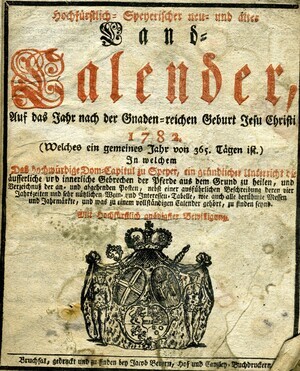 Hochfürstlich-Speyerischer neu- und alter
Land-
Calender,
Auf das Jahr nach der Gnaden-reichen Geburt Jesu Christi
1782.
(Welches ein gemeines Jahr von 365. Tägen ist.)
In welchem
Das hochwürdige Dom-Capitul zu Speyer, ein gründlicher Unterricht die
äusserliche und innerliche Gebrechen der Pferde aus dem Grund zu heilen, und
Verzeichnuß der an- und abgehenden Posten, nebst einer ausführlichen Beschreibung derer vier
Jahrszeiten und sehr nützlichen Wein- und Interessen-Tabelle, wie auch alle berühmte Messen
und Jahrmärkte, und was zu einem vollständigen Calender gehört, zu finden seynd.
Mit Hochfürstlich gnädigster Bewilligung.
Bruchsal, gedruckt und zu finden bey Jacob Bevern, Hof und Canzley-Buchdruckern